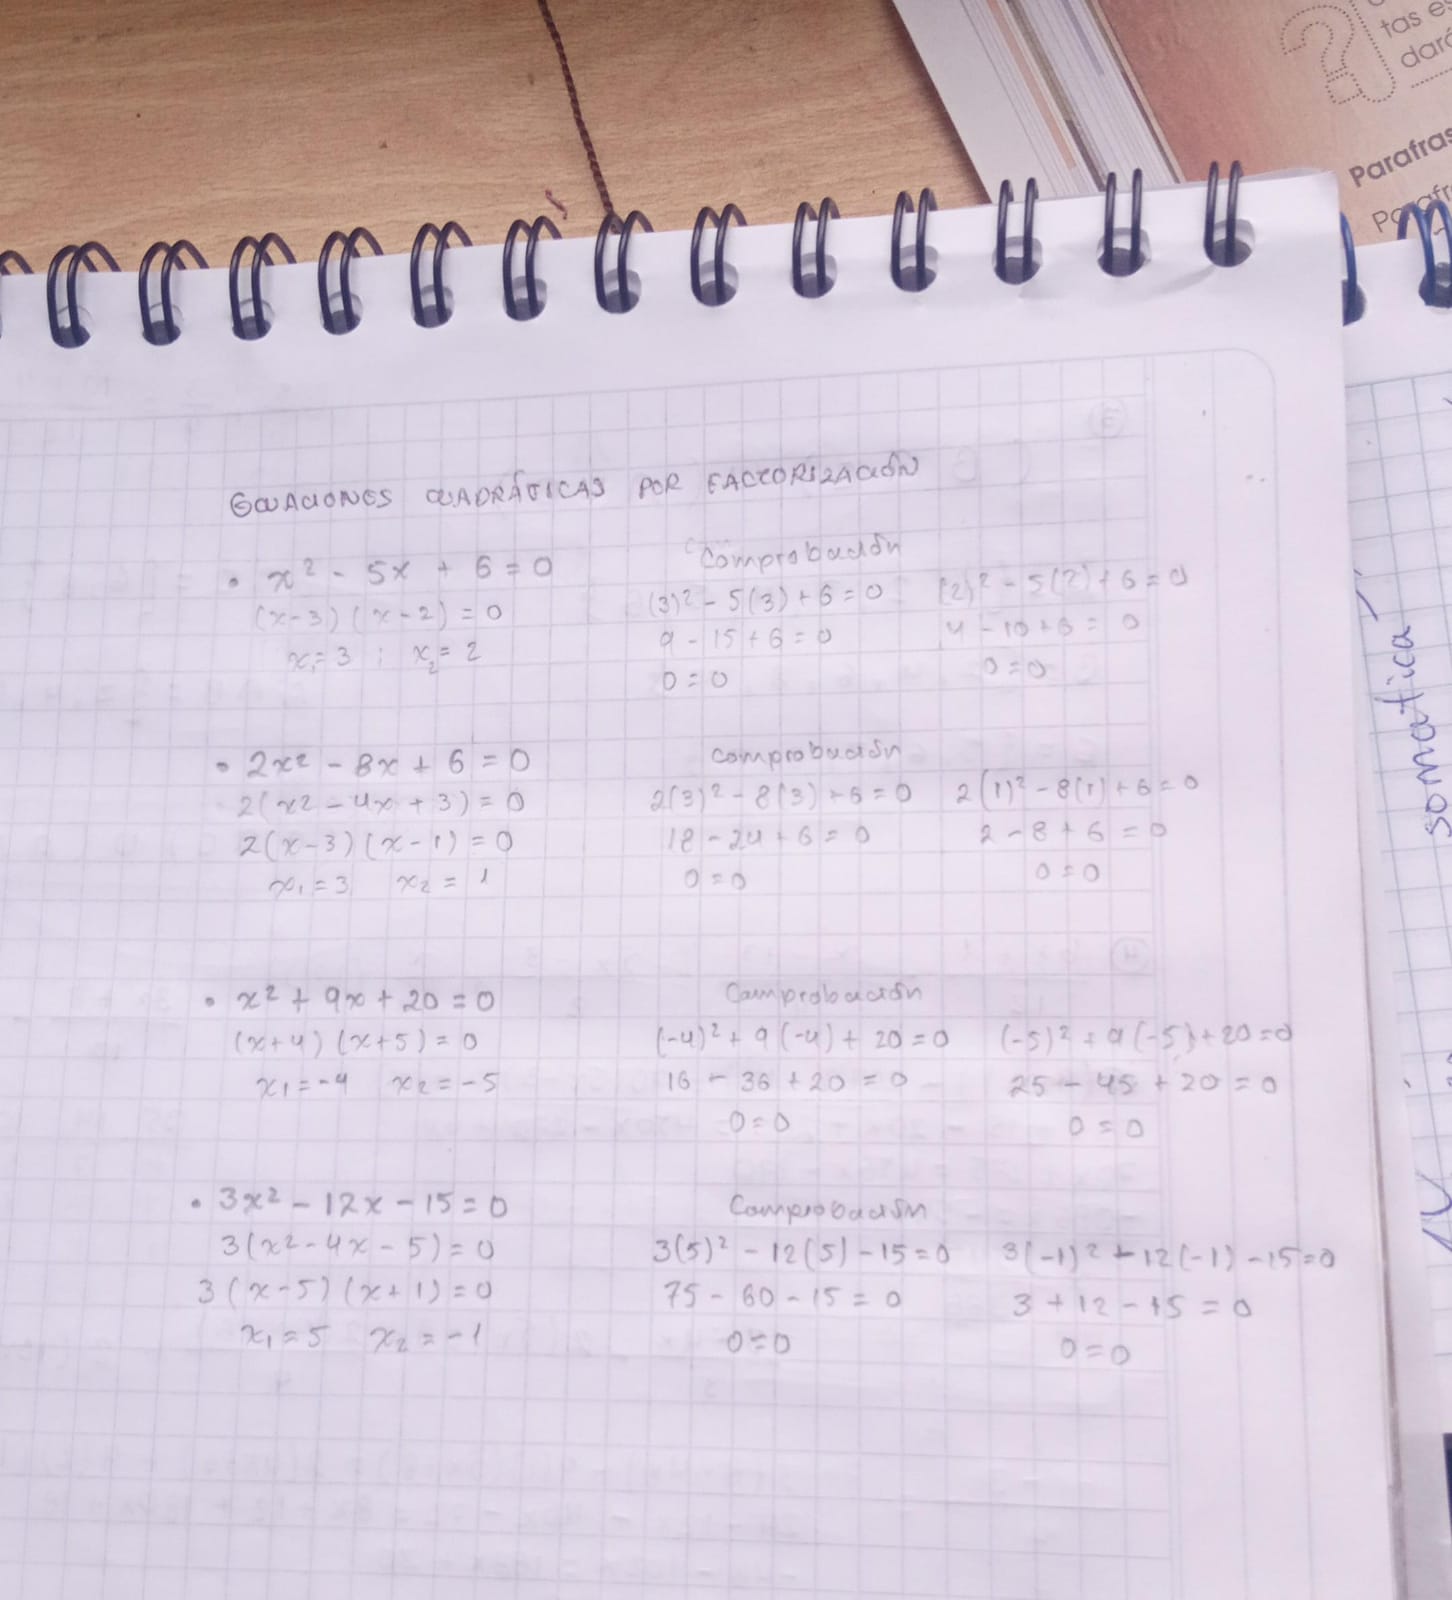 tas es
dará
Parafras
ECUACIONES CUADRÁTICAS POR FACTORIZACIÓN
• x² - 5x + 6 = 0
(x-3) (x-2) = 0
x₁= 3 ; x₂= 2
Comprobación
(3)² - 5(3) + 6 = 0
9 - 15 + 6 = 0
0 = 0
(2)² - 5(2) + 6 = 0
4 - 10 + 6 = 0
0 = 0
• 2x² - 8x + 6 = 0
2(x² - 4x + 3) = 0
2(x-3) (x-1) = 0
x₁ = 3 x₂ = 1
Comprobación
2(3)² - 8(3) + 6 = 0
18 - 24 + 6 = 0
0 = 0
2(1)² - 8(1) + 6 = 0
2 - 8 + 6 = 0
0 = 0
• x² + 9x + 20 = 0
(x+4) (x+5) = 0
x₁ = -4 x₂ = -5
Comprobación
(-4)² + 9(-4) + 20 = 0
16 - 36 + 20 = 0
0 = 0
(-5)² + 9(-5) + 20 = 0
25 - 45 + 20 = 0
0 = 0
• 3x² - 12x - 15 = 0
3(x² - 4x - 5) = 0
3(x-5) (x+1) = 0
x₁ = 5 x₂ = -1
Comprobación
3(5)² - 12(5) - 15 = 0
75 - 60 - 15 = 0
0 = 0
3(-1)² - 12(-1) - 15 = 0
3 + 12 - 15 = 0
0 = 0
somatica